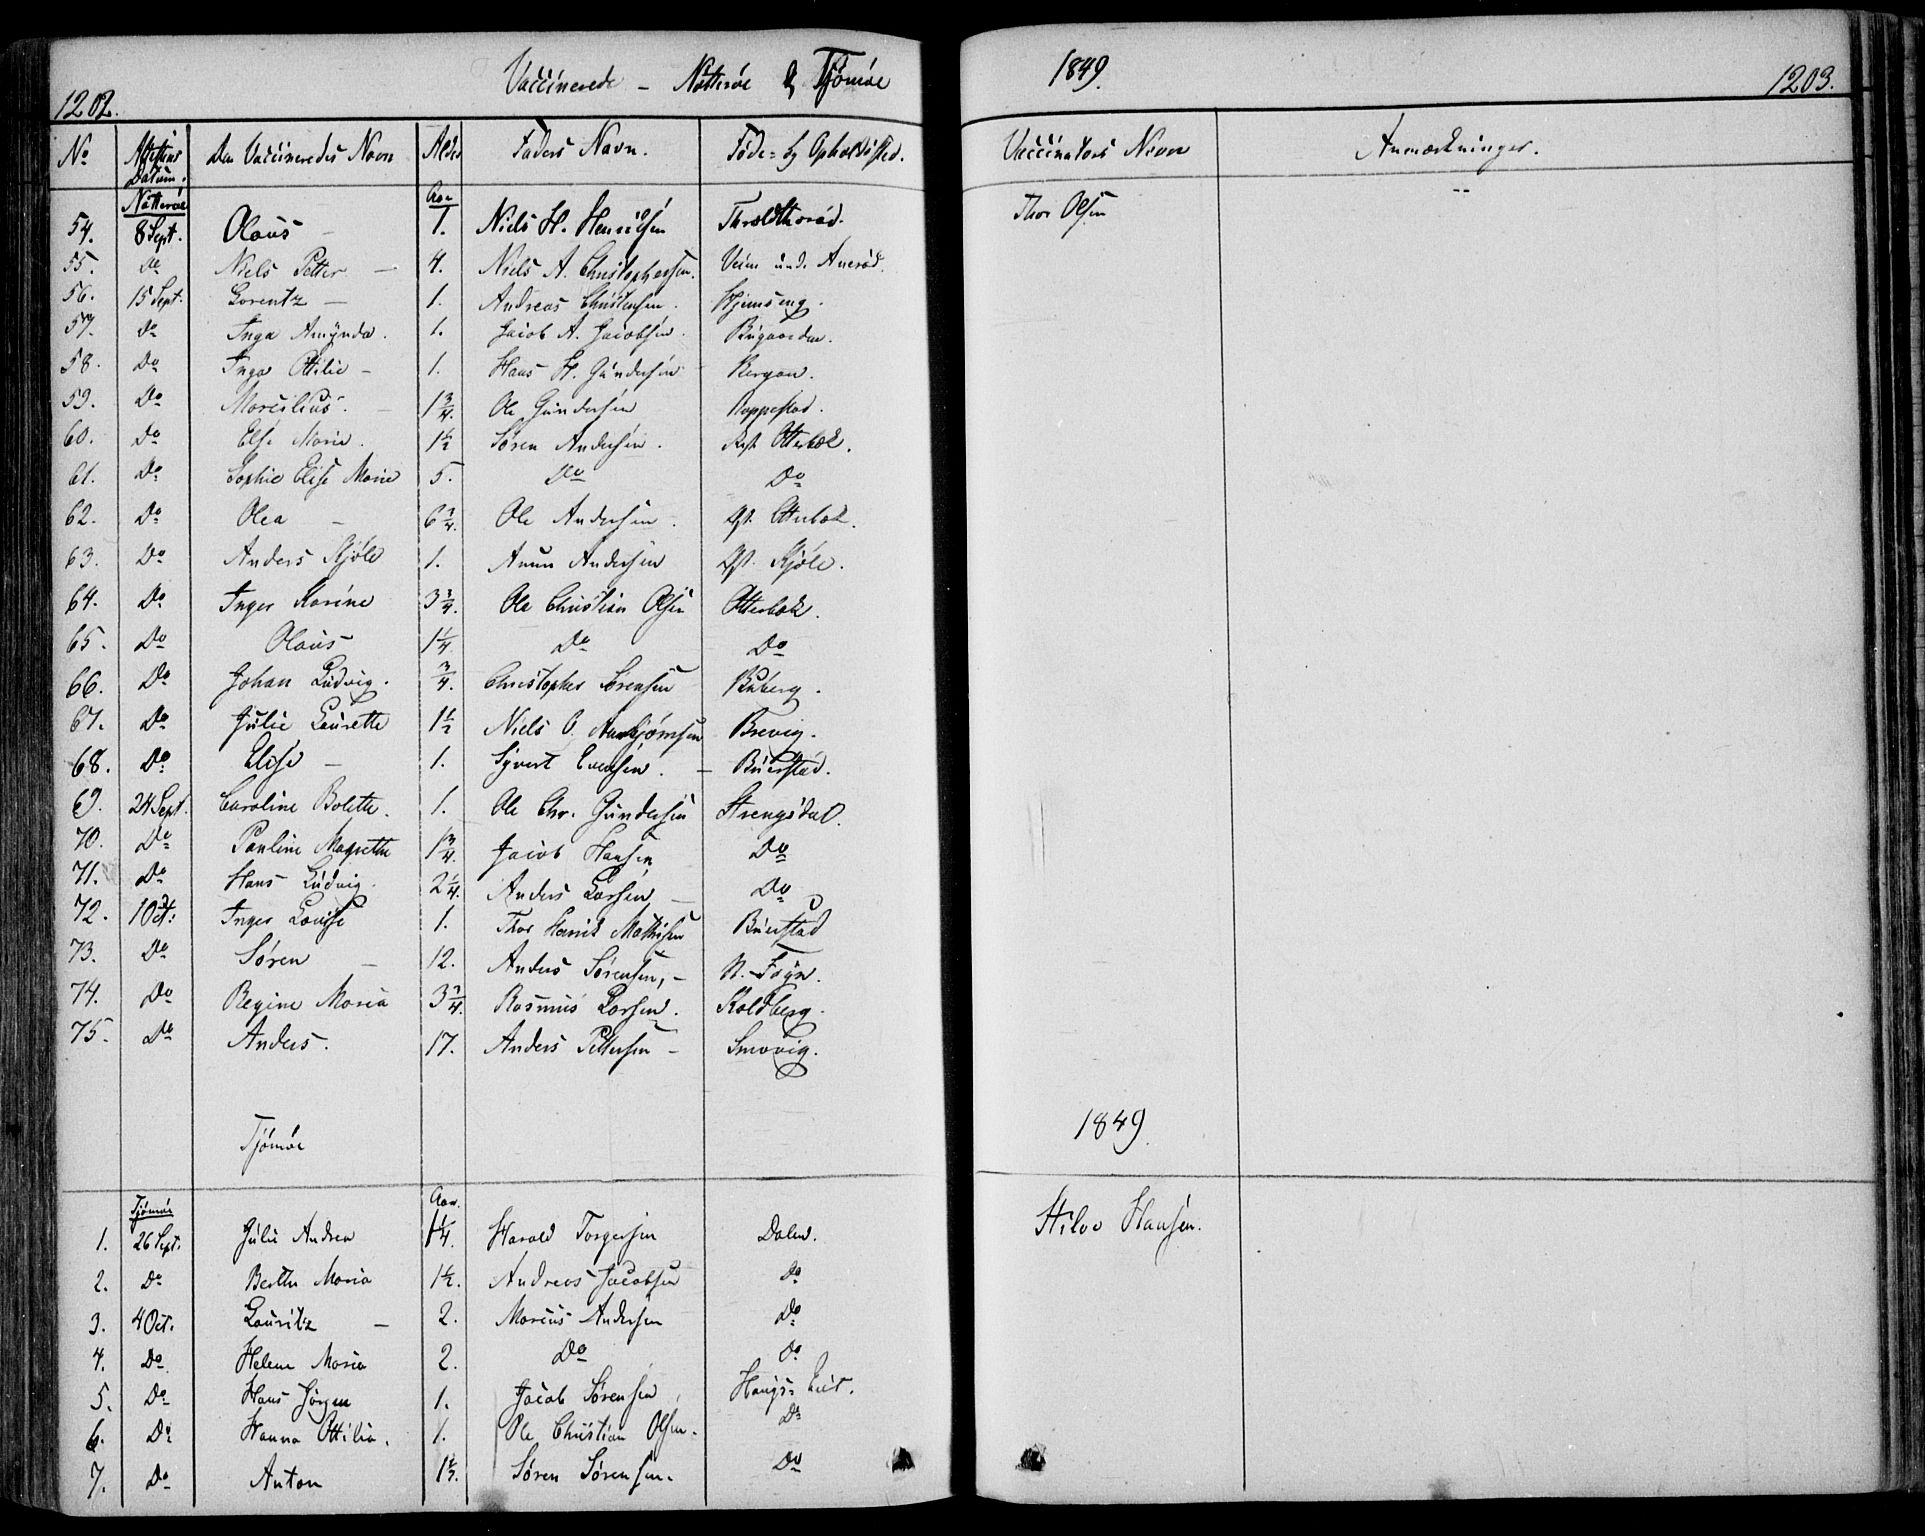 1202.
Vaccinerede - Nøtterøe & Tjømøe
1849.
1203.
No Attestens Datum. Den Vaccineredes Navn Alder Faders Navn. Føde- og Opholdssted. Vaccinators Navn Anmærkninger.
Nøtterøe Aar
54. 8 Sept. Olaus - 1. Niels H. Henriksen Thor Olsen
55. Do Niels Petter - 4. Niels A. Christophersen.
56. 15 Sept. Lorentz - 1. Andreas Christensen. Hjemseng.
57. Do Inga Amynda. 1. Jacob A. Jacobsen. Bugaarden.
58. Do Inga Ottilie - 1. Hans H. Gundersen Bergan.
59. Do Marcilius. - 1 3/4. Ole Gundersen Roppestad.
60. Do Else Marie. 1 1/2 Søren Andersen. Otterbæk.
61. Do Sophie Elise Marie 5. Do Do
62. Do Olea - 6 3/4. Ole Andersen. Otterbæk.
63. Do Anders Kjøle 1. Anun Andersen Kjøle.
64. Do Inger Karine 3 3/4. Ole Christian Olsen Otterbæk.
65. Do Olaus 1 1/4 Do Do
66. Do Johan Ludvig. 3/4. Christopher Sørensen Buberg.
67. Do Julie Laurette 1 1/2 Niels O. Brevig.
68. Do Elise - 1. Syvert Evensen. - Buerstad.
69. 24 Sept. Caroline Bolette. 1. Ole Chr. Gundersen Strengsdal.
70. Do Pauline Magrethe 1 3/4. Jacob Hansen Do
71. Do Hans Ludvig. 2 1/4. Anders Larsen - Do
72. 1 Oct: Inger Louise 1. Thor Henrik Mathisen Buerstad
73. Do Søren - 12. Anders Sørensen, - N. Føyn.
74. Do Regine Maria 3 3/4. Rasmus Larsen. Koldberg.
75. Do Anders. 17. Anders Pettersen - Smovig.
Tjømøe 1849.
Tjømøe Aar.
1. 26 Sept. Julie Andrea 1 1/4. Harald Torgersen Dalen. Hilvo Hansen.
2. Do Berthe Maria 1 1/2. Andreas Jacobsen Do
3. 4 Oct. Lauritz - 2. Marcus Andersen Do
4. Do Helene Maria 2. Do Do
5. Do Hans Jørgen 1. Jacob Sørensen
6. Do Hanna Ottilia. 1. Ole Christian Olsen. Do
7. Do Anton 1 1/2. Søren Sørensen. Do